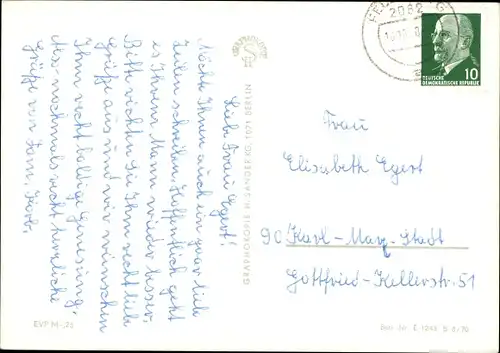 Liebe Frau Egert!
Möchte Ihnen auch ein paar liebe
Zeilen schreiben. Hoffentlich geht
es Ihrem Mann wieder besser.
Bitte richten Sie Ihm recht liebe
Grüße aus und wir wünschen
Ihm recht baldige Genesung.
nochmals recht herzliche
Grüße von Fam.
GRAPHOKOPIE H. SANDER KG, 1071 BERLIN
EVP M -,25
2082
10
DEUTSCHE
DEMOKRATISCHE REPUBLIK
Frau
Elisabeth Egert
90 Karl-Marx-Stadt
Gottfried-Kellerstr. 51